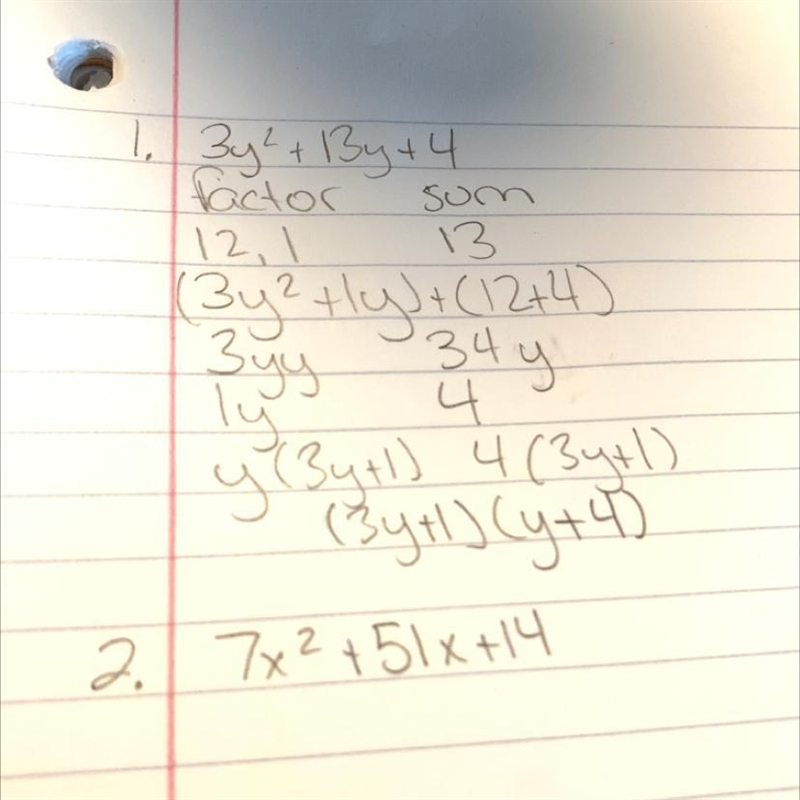 1. 3y² + 13y + 4
factor sum
12, 1 13
(3y² + 1y) + (12 + 4)
3yy 34y
1y 4
y(3y+1) 4(3y+1)
(3y+1)(y+4)
2. 7x² + 51x + 14